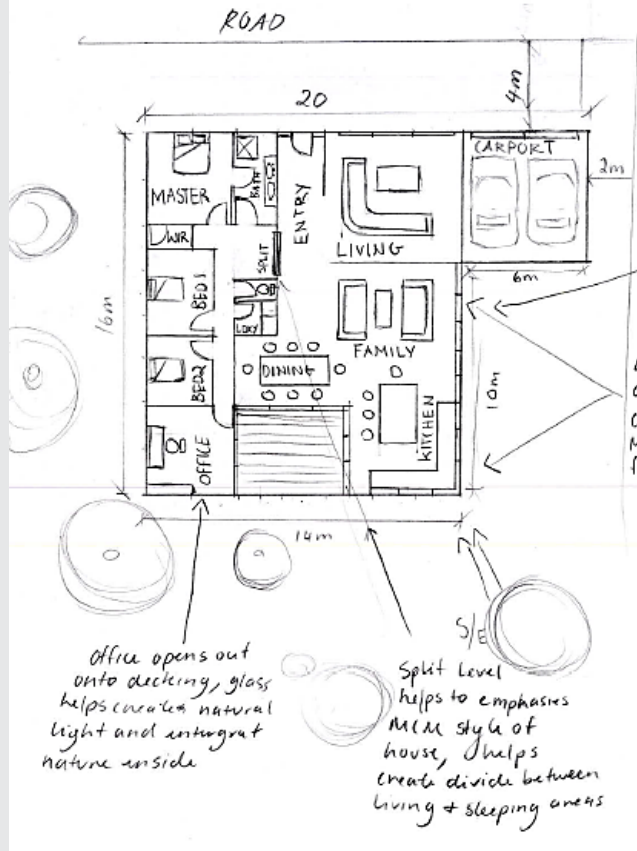 ROAD
20
4m
CARPORT
2m
MASTER
BATH
ENTRY
LIVING
WIR
SPLIT
6m
16m
BED 1
LDRY
FAMILY
DINING
BED2
10m
KITCHEN
OFFICE
14m
S/E
Office opens out
onto decking, glass
helps creates natural
light and intergrat
nature inside
Split level
helps to emphasies
MCM style of
house, helps
create divide between
living & sleeping areas